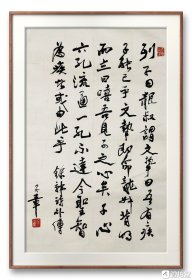 列子曰龍叔謂文摯曰吾有疾
子能已乎文摯即命龍叔背明
而立曰嘻吾見子之心矣子心
六孔流通一孔不達今聖智
為疾者或由此乎